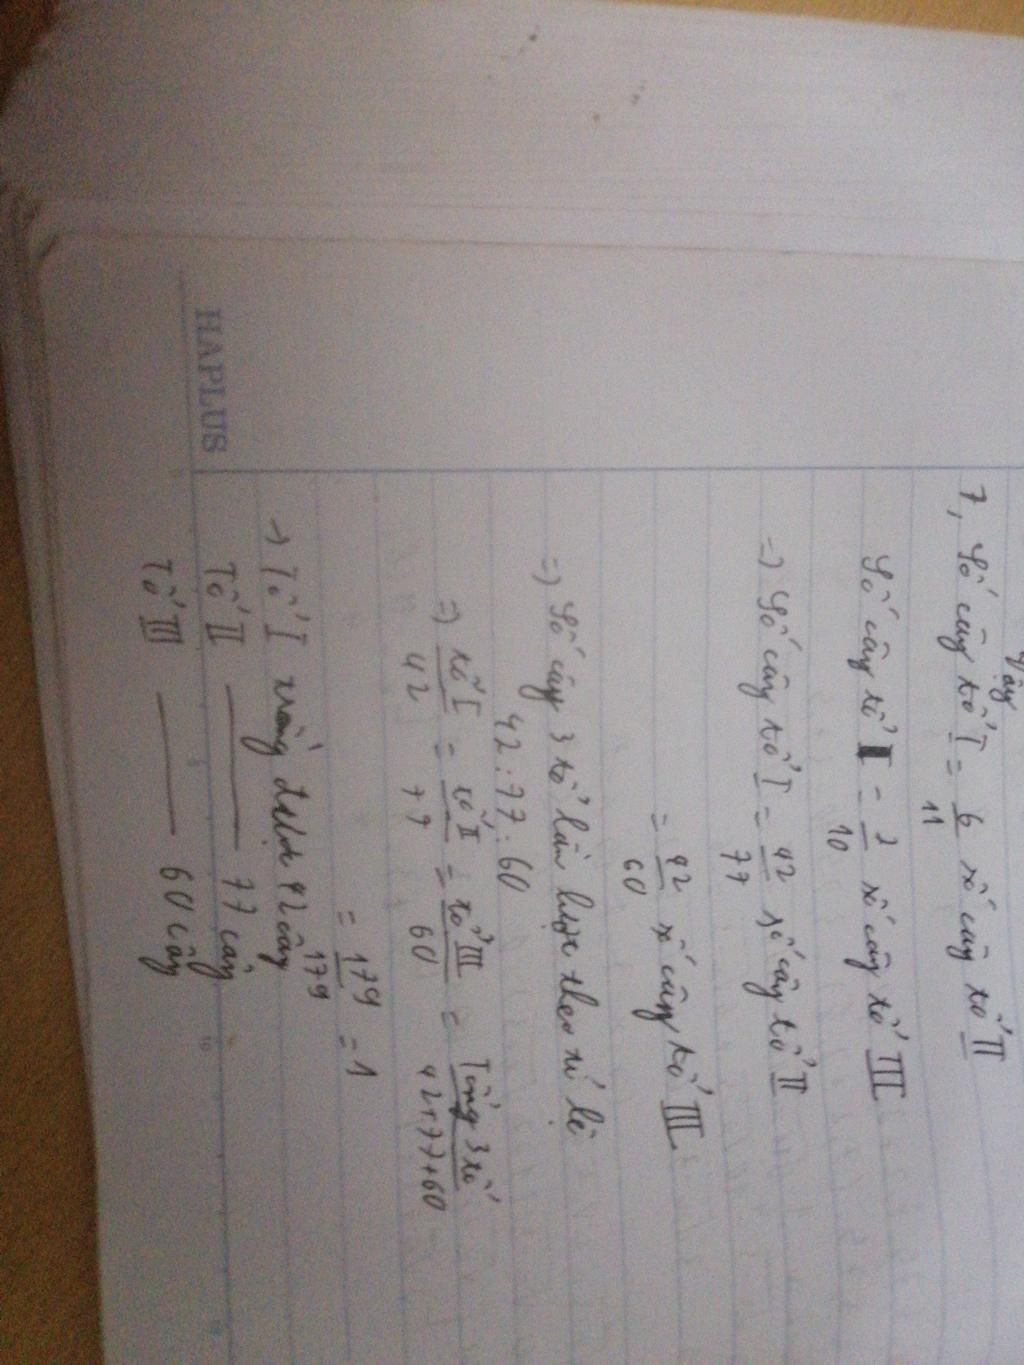 7, Số cây tổ I = 6/11 số cây tổ II
Số cây tổ I = 7/10 số cây tổ III
=) Số cây tổ I = 42/77 số cây tổ II
= 42/60 số cây tổ III
=) Số cây 3 tổ lần lượt theo tỉ lệ
42 : 77 : 60
=) tổ I/42 = tổ II/77 = tổ III/60 = Tổng 3 tổ/42+77+60
= 179/179 = 1
→ Tổ I trồng được 42 cây
Tổ II —— 77 cây
Tổ III —— 60 cây
HAPLUS